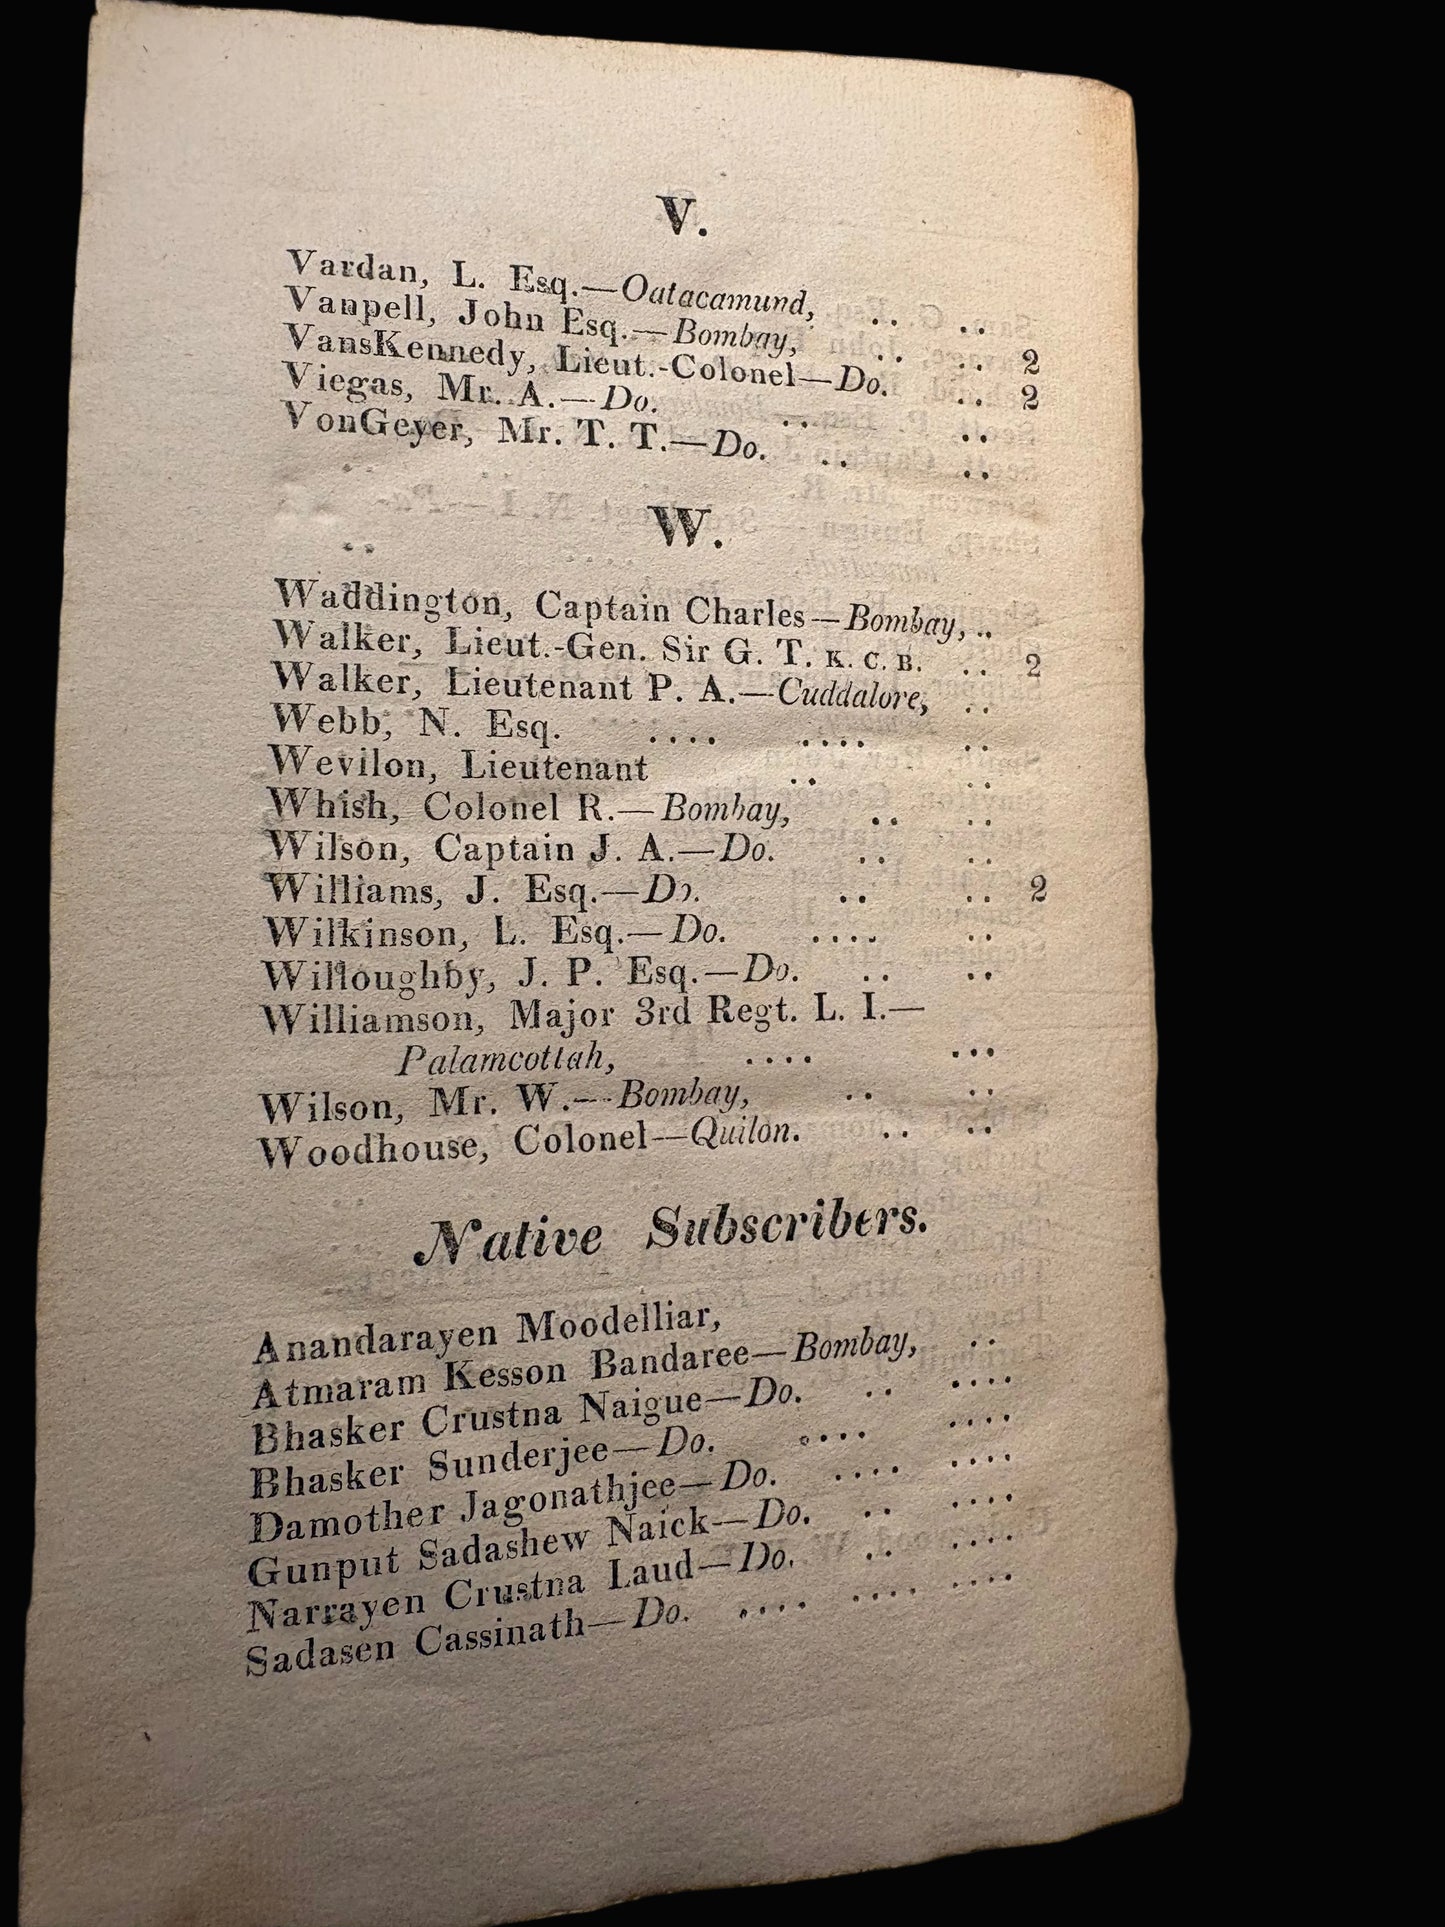 V.
Vardan, L. Esq.—Oatacamund, .. ..
Vanpell, John Esq.—Bombay, .. .. 2
VansKennedy, Lieut.-Colonel—Do. .. 2
Viegas, Mr. A.—Do. .. ..
VonGeyer, Mr. T. T.—Do. .. ..
W.
Waddington, Captain Charles—Bombay, ..
Walker, Lieut.-Gen. Sir G. T. K. C. B. .. 2
Walker, Lieutenant P. A.—Cuddalore, ..
Webb, N. Esq. .... .... ..
Wevilon, Lieutenant .. ..
Whish, Colonel R.—Bombay, .. ..
Wilson, Captain J. A.—Do. .. ..
Williams, J. Esq.—Do. .. .. 2
Wilkinson, L. Esq.—Do. .... ..
Willoughby, J. P. Esq.—Do. .. ..
Williamson, Major 3rd Regt. L. I.—
Palamcottah, .... ...
Wilson, Mr. W.—Bombay, .. ..
Woodhouse, Colonel—Quilon. .. ..
Native Subscribers.
Anandarayen Moodelliar,
Atmaram Kesson Bandaree—Bombay, ..
Bhasker Crustna Naigue—Do. .. ....
Bhasker Sunderjee—Do. .... ....
Damother Jagonathjee—Do. .... ....
Gunput Sadashew Naick—Do. .. ....
Narrayen Crustna Laud—Do. .. ....
Sadasen Cassinath—Do. .... .... ....